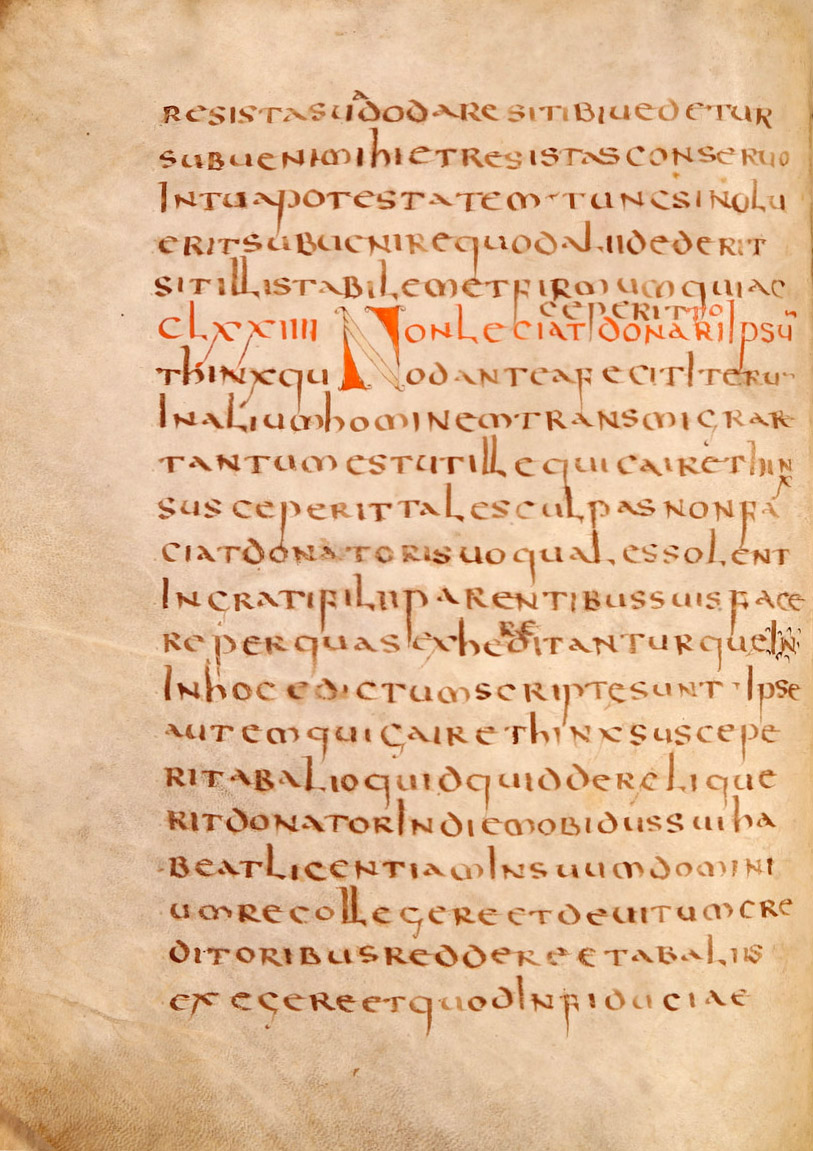 resistas uadodare si tibi uedetur
subuenim ihi et resistas conseruo
In tua potestatem· tunc si uolu
erit subuenire quod alii dederit
sit illi stabilem et firmum quia c
ceperit
CLXXIIII Non leciat donatori Ipsū
thinx quod antea fecit Iteru
In alium hominem transmigrar
tantum est ut ille qui cairethinx
susceperit tales culpas non fa
ciat donatori suo quales solent
Ingrati filii parentibus suis face
re per quas exhereditantur que In
In hoc edictum scripte sunt· Ipse
autem qui gairethinx suscepe
rit ab alio quidquid derelique
rit donator In diem obidus sui ha
beat licentiam In suum domini
um recollegere et deuitum cre
ditoribus reddere et ab aliis
exegere et quod In fiduciae